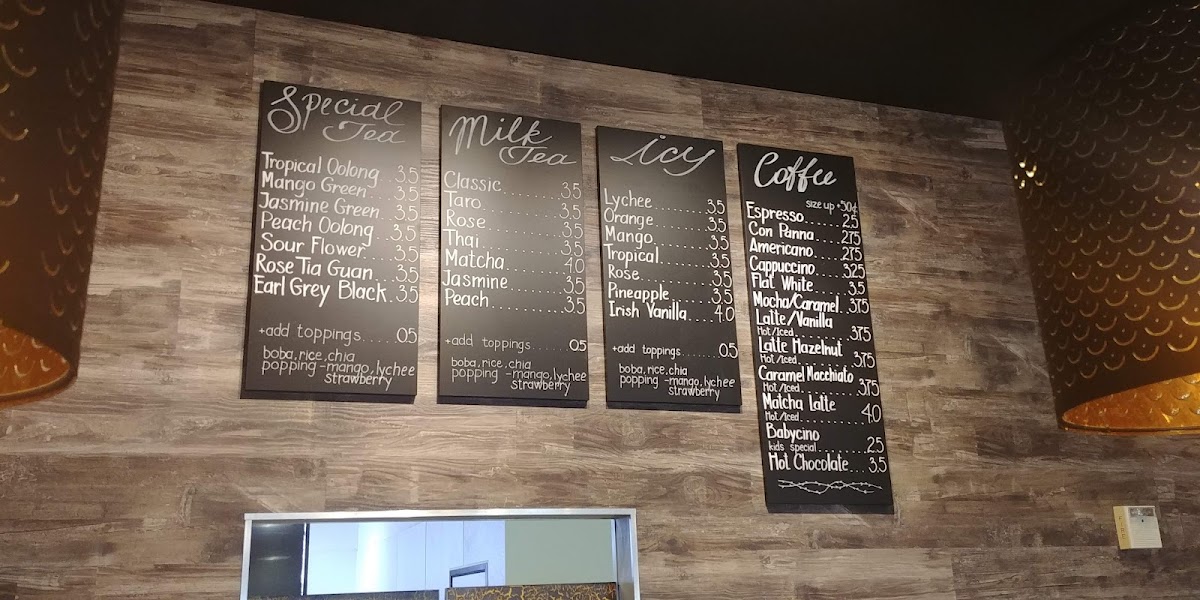 Special
Tea
Tropical Oolong...3.5
Mango Green...3.5
Jasmine Green...3.5
Peach Oolong...3.5
Sour Flower...3.5
Rose Tia Guan...3.5
Earl Grey Black..3.5
+add toppings......0.5
boba, rice, chia
popping - mango, lychee
strawberry
Milk
Tea
Classic..........3.5
Taro..............3.5
Rose..............3.5
Thai..............3.5
Matcha..........4.0
Jasmine.........3.5
Peach............3.5
+add toppings......0.5
boba, rice, chia
popping - mango, lychee
strawberry
icy
Lychee...........3.5
Orange...........3.5
Mango............3.5
Tropical.........3.5
Rose..............3.5
Pineapple.......3.5
Irish Vanilla....4.0
+add toppings......0.5
boba, rice, chia
popping - mango, lychee
strawberry
Coffee
size up +50¢
Espresso........2.5
Con Panna.....2.75
Americano......2.75
Cappuccino.....3.25
Flat White......3.5
Mocha/Caramel..3.75
Latte/Vanilla
Hot/Iced..........3.75
Latte Hazelnut
Hot/Iced..........3.75
Caramel Macchiato
Hot/Iced..........3.75
Matcha Latte
Hot/Iced..........4.0
Babycino
kids special........2.5
Hot Chocolate...3.5